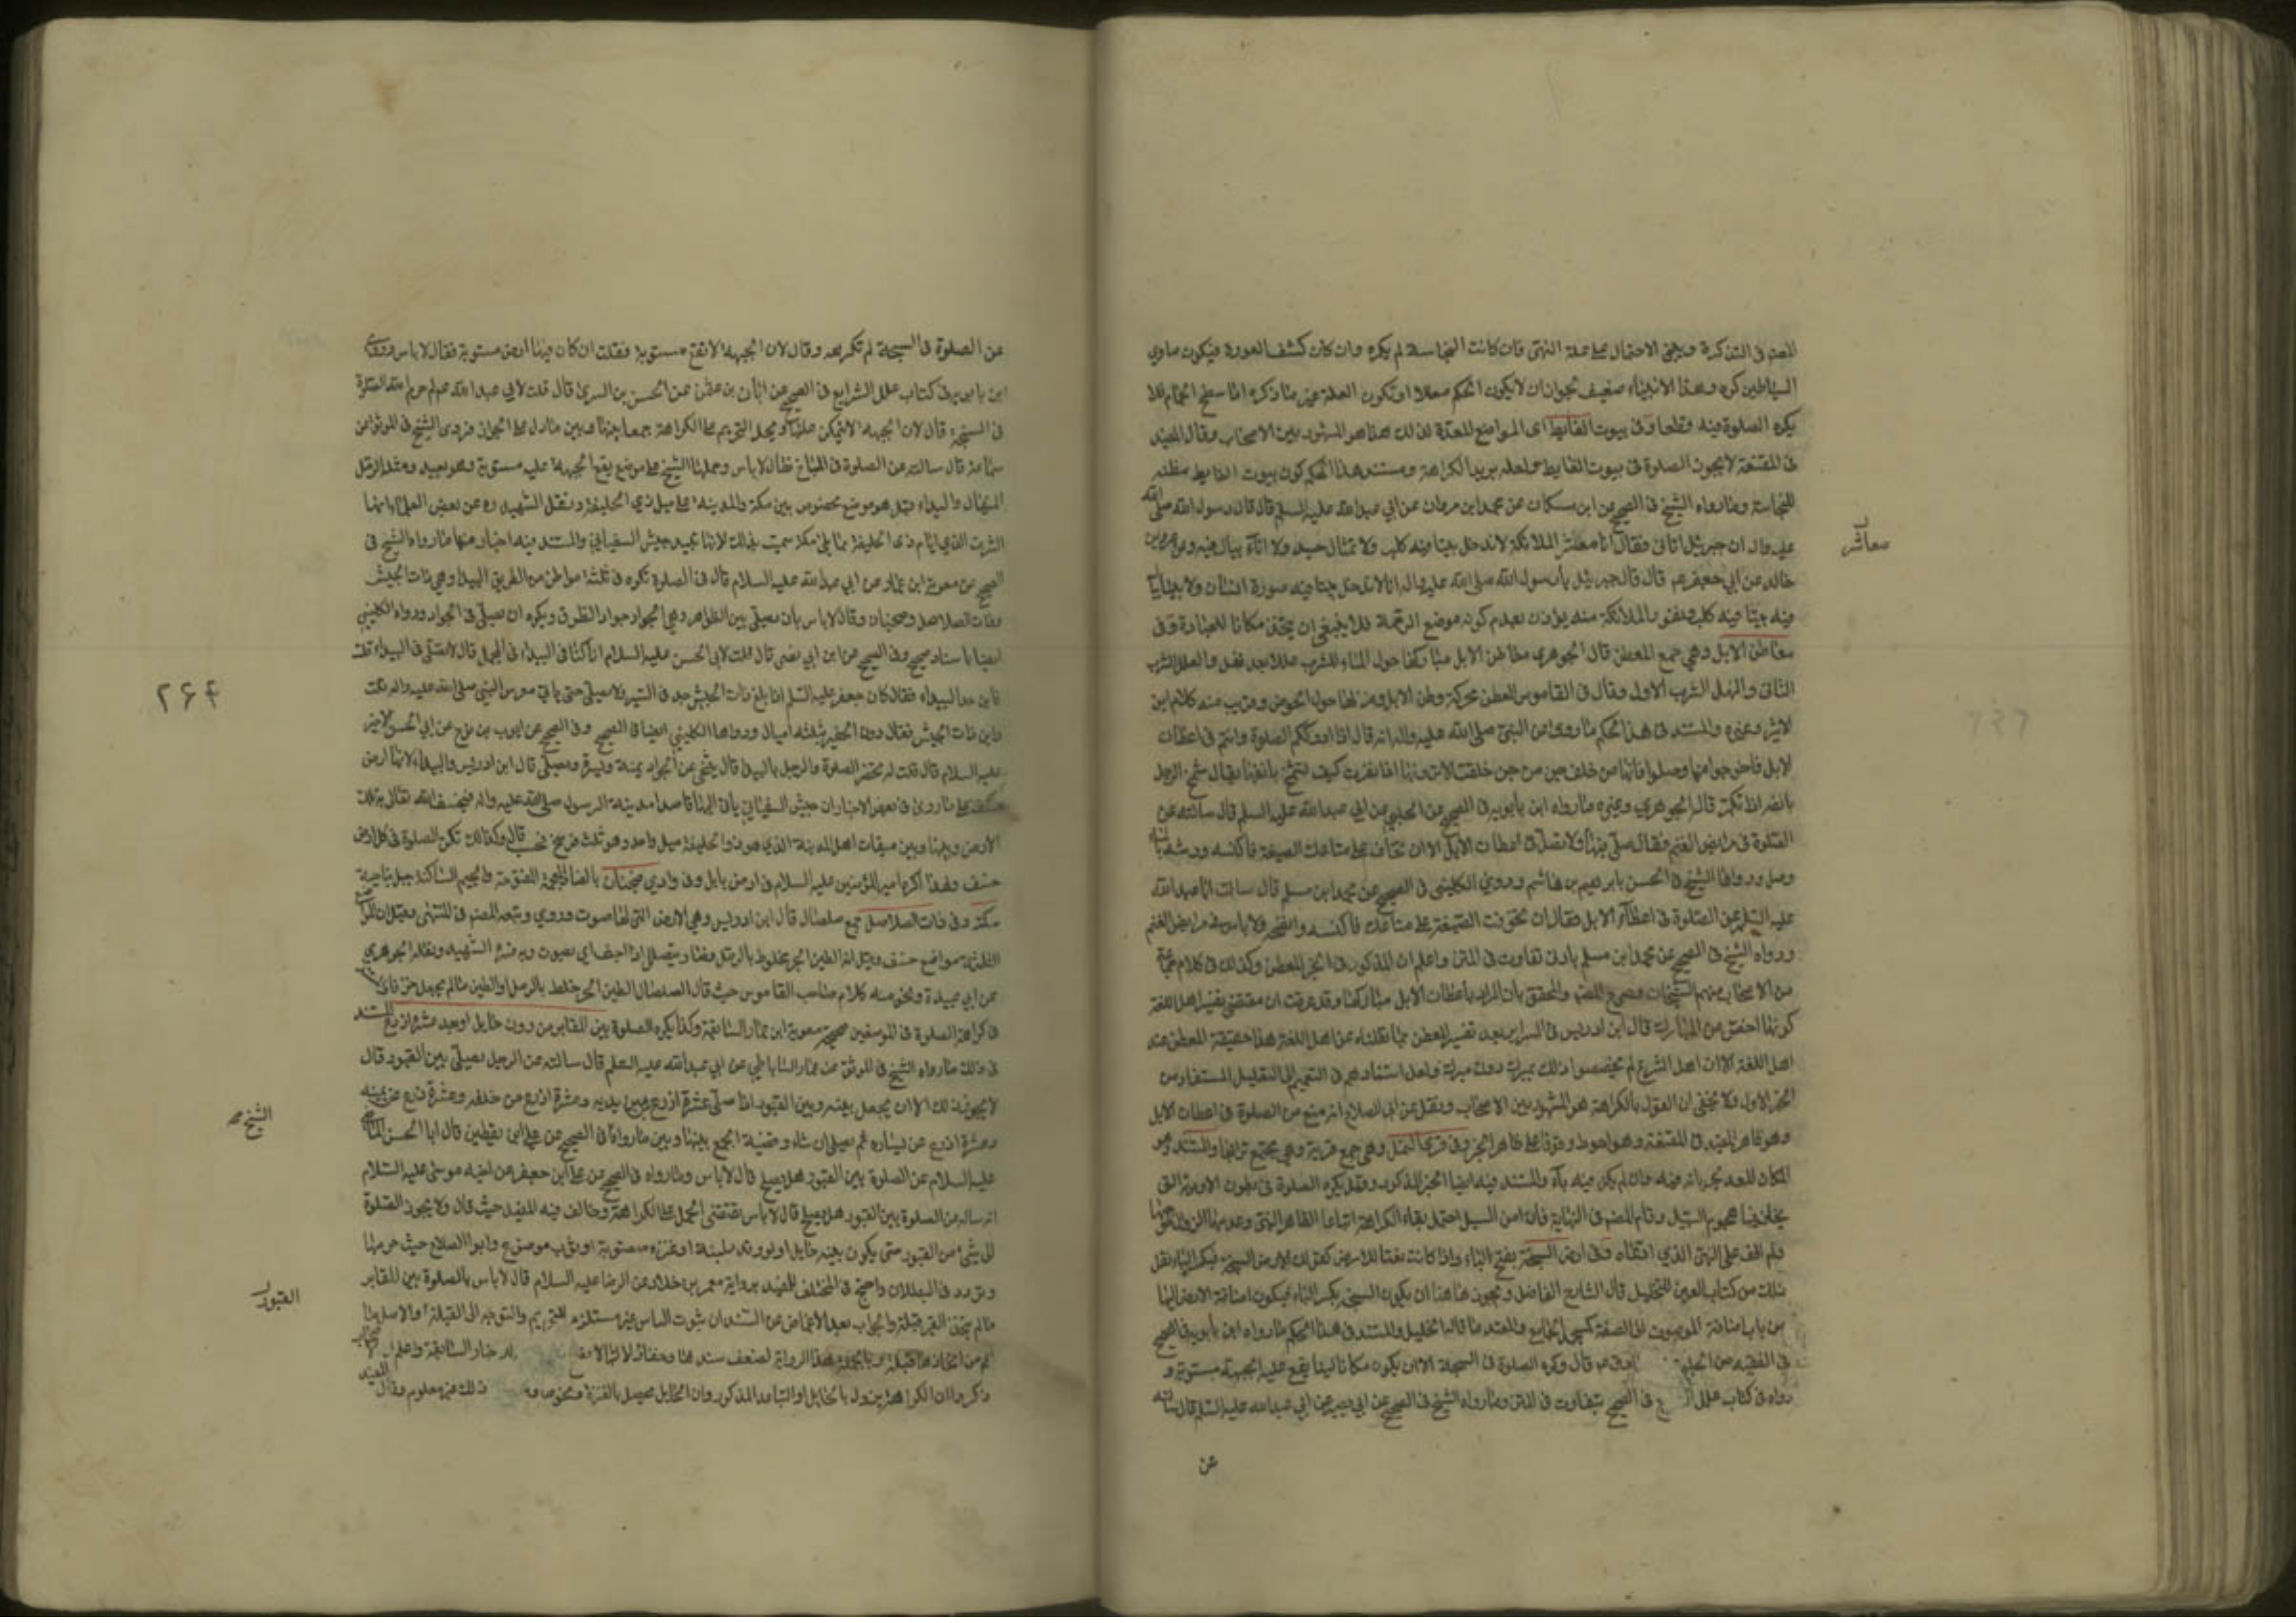 المصنف في التذكرة ويبتني الاحتمال على علة النهي فان كانت النجاسة لم يكره وان كان كشف العورة فيكون ماوى
الشياطين كره وهذا الابتناء ضعيف لجواز ان لا يكون الحكم معللا او تكون العلة غير ما ذكره اما سطح الحمام فلا
يكره الصلوة فيه قطعا وفي بيوت الغايط اى المواضع المعدة لذلك هذا هو المشهور بين الاصحاب وقال المفيد
في المقنعة لا يجوز الصلوة في بيوت الغايط ولعله يريد الكراهة ومستند هذا الحكم كون بيوت الغايط مظنة
للنجاسة وما رواه الشيخ في الصحيح عن ابن مسكان عن محمد ابن مروان عن ابي عبد الله عليه السلم قال قال رسول الله صلى الله
عليه واله ان جبرئيل اتانى فقال انا معاشر الملائكة لا ندخل بيتا فيه كلب ولا تمثال جسد ولا اناء يبال فيه وعن عمرو بن
خالد عن ابي جعفر عم قال قال جبرئيل يا رسول الله صلى الله عليه واله انا لا ندخل بيتا فيه صورة انسان ولا بيتا يبال
فيه بيتا فيه كلب ونفور الملائكة منه يؤذن بعدم كونه موضع الرحمة فلا ينبغي ان يتخذ مكانا للعبادة وفي
معاطن الابل وهي جمع المعطن قال الجوهري معاطن الابل مباركها حول الماء للشرب عللا بعد نهل والعلل الشرب
الثانى والنهل الشرب الاول وقال في القاموس العطن محركة وطن الابل ومبركها حول الحوض وقريب منه كلام ابن
الاثير وغيره والمستند في هذا الحكم ما روى عن النبي صلى الله عليه واله انه قال اذا ادركتكم الصلوة وانتم في اعطان
الابل فاخرجوا منها وصلوا فانها من خلف جن من جن خلقت الا ترونها اذا نفرت كيف تشمخ بانفها يقال شمخ الرجل
بانفه اذا تكبر قاله الجوهري وغيره ما رواه ابن بابويه في الصحيح عن الحلبي عن ابي عبد الله عليه السلم قال سالته عن
الصلوة في مرابض الغنم فقال صل فيها ولا تصل في اعطان الابل الا ان تخاف على متاعك الضيعة فاكنسه ورشه بالماء
وصل ورواها الشيخ في الحسن بابرهيم بن هاشم وروى الكليني في الصحيح عن محمد ابن مسلم قال سالت ابا عبد الله
عليه السلم عن الصلوة في اعطان الابل فقال ان تخوفت الضيعة على متاعك فاكنسه وانضحه ولا باس في مرابض الغنم
ورواه الشيخ في الصحيح عن محمد ابن مسلم بادنى تفاوت في المتن واعلم ان المذكور في الخبر المعطن وكذلك في كلام جماعة
من الاصحاب منهم الشيخان وصرح المصنف والمحقق بان المراد باعطان الابل مباركها وقد عرفت ان مقتضى تفسير اهل اللغة
كونها اخص من المبارك قال ابن ادريس في السراير بعد تفسير المعطن بما نقلناه عن اهل اللغة هذا حقيقة المعطن عند
اهل اللغة الا ان اهل الشرع لم يخصصوا ذلك بمبرك دون مبرك ولعل استنادهم في التعميم الى التعليل المستفاد من
الخبر الاول ولا يخفى ان القول بالكراهة هو المشهور بين الاصحاب ونقل عن ابي الصلاح انه منع من الصلوة في اعطان الابل
وهو ظاهر المفيد في المقنعة وهو احوط وقوفا على ظاهر الخبر وفي قرى النمل وهي جمع قرية وهي مجتمع ترابها والمستند وهو
المكان المعد لجريانه فيه وان لم يكن فيه ماء والمستند فيه ايضا الخبر المذكور وقيل يكره الصلوة في بطون الاودية التي
يخاف فيها هجوم السيل وقام المصنف في النهاية فان امن السيل احتمل بقاء الكراهة اتباعا لظاهر النهي وعدمها لزوال
ولم اقف على النهي الذي ادعاه وفي ارض السبخة بفتح الباء واذا كانت نعتا للارض كقولك الارض السبخة فبكسر الباء نقل
ذلك من كتاب العين للخليل قال الشارح الفاضل ويجوز هاهنا ان يكون السبخة بكسر الباء فيكون اضافة الارض اليها
من باب اضافة الموصوف الى الصفة كمسجد الجامع والمستند ما قاله الخليل والمستند في هذا الحكم ما رواه ابن بابويه في الصحيح
في الفقيه عن الحلبي عم قال وكره الصلوة في السبخة الا ان يكون مكانا لينا يقع عليه الجبهة مستوية و
رواه في كتاب علل في الصحيح بتفاوت في المتن وما رواه الشيخ في الصحيح عن ابي بصير عن ابي عبد الله عليه السلم قال سالته
عن
معاشر
عن الصلوة في السبخة لم تكرهه وقال لان الجبهة لا تقع مستوية فقلت ان كان فيها ارض مستوية فقال لا باس وروى
ابن بابويه في كتاب علل الشرايع في الصحيح عن ابان بن عثمن عن الحسن بن السرى قال قلت لابي عبد الله عم لم حرم الله الصلوة
في السبخة قال لان الجبهة لا تتمكن عليها ويحمل التحريم على الكراهة جمعا بينها وبين ما دل على الجواز فروى الشيخ في الموثق عن
سماعة قال سالته عن الصلوة في السباخ فقال لا باس وحملها الشيخ على موضع يقع الجبهة عليه مستوية وهو بعيد ومثله الرمل
المنهال والبيداء قيل هو موضع مخصوص بين مكة والمدينة على ميل ذي الحليفة ونقل الشهيد ره عن بعض العلماء انها
الشرف الذي امام ذي الحليفة مما يلي مكة سميت بذلك لانها تبيد جيش السفيانى والمستند فيه اخبار منها ما رواه الشيخ في
الصحيح عن معوية ابن عمار عن ابي عبد الله عليه السلام قال في الصلوة تكره في ثلثة مواطن من الطريق البيداء وهي ذات الجيش
وذات الصلاصل وضجنان وقال لا باس بان يصلى بين الظواهر وهي الجواد جواد الطرق ويكره ان يصلى في الجواد ورواه الكليني
ايضا باسناد صحيح وفي الصحيح عن ابن ابي نصر قال قلت لابي الحسن عليه السلام انا كنا في البيداء في قال لا تصلى في البيداء قلت
فاين حد البيداء فقال كان جعفر عليه السلم اذا بلغ ذات الجيش جد في السير ولا يصلى حتى ياتي معرس النبي صلى الله عليه واله قلت
واين ذات الجيش فقال دون الحفيرة بثلثة اميال ورواها الكليني ايضا في الصحيح وفي الصحيح عن ايوب بن نوح عن ابي الحسن الاخير
عليه السلام قال قلت له تحضر الصلوة والرجل بالبيداء قال يتنحى عن الجواد يمنة ويسرة ويصلى قال ابن ادريس والبيداء لانها ارض
خسف على ما روى في بعض الاخبار ان جيش السفيانى ياتي اليها قاصدا مدينة الرسول صلى الله عليه واله فيخسف الله تعالى بتلك
الارض وبينها وبين ميقات اهل المدينة الذي هو ذو الحليفة ميل واحد وهو ثلث فرسخ فحسب قال وكذلك تكره الصلوة في كل ارض
خسف ولهذا كره امير المؤمنين عليه السلام في ارض بابل وفي وادي ضجنان بالضاد المعجمة المفتوحة والجيم الساكنة جبل بناحية
مكة وفي ذات الصلاصل جمع صلصال قال ابن ادريس وهي الارض التي لها صوت ودوي وتبعه المصنف في المنتهى وقيل ان المواضع
الثلثة مواضع خسف وقيل انه الطين الحر المخلوط بالرمل فصار يتصلصل اذا جف اي يصوت وبه فسره الشهيد ونقله الجوهري
عن ابي عبيدة ونحو منه كلام صاحب القاموس حيث قال الصلصال الطين الحر خلط بالرمل او الطين ما لم يجعل خزفا والمستند
في كراهة الصلوة في الموضعين صحيحة معوية ابن عمار السابقة وكذا يكره الصلوة بين المقابر من دون حايل او بعد عشر اذرع المستند
في ذلك ما رواه الشيخ في الموثق عن عمار الساباطي عن ابي عبد الله عليه السلم قال سالته عن الرجل يصلى بين القبور قال
لا يجوز ذلك الا ان يجعل بينه وبين القبور اذا صلى عشرة اذرع من بين يديه وعشرة اذرع من خلفه وعشرة اذرع عن يمينه
وعشرة اذرع عن يساره ثم يصلى ان شاء وقضية الجمع بينها وبين ما رواه في الصحيح عن على ابن يقطين قال ابا الحسن الماضي
عليه السلام عن الصلوة بين القبور هل يصلح قال لا باس وما رواه في الصحيح عن على ابن جعفر عن اخيه موسى عليه السلام
انه ساله عن الصلوة بين القبور هل يصلح قال لا باس تقتضي الحمل على الكراهة وخالف فيه المفيد حيث قال ولا يجوز الصلوة
الى شيء من القبور حتى يكون بينه حايل او لو قدر لبنة او عنزة منصوبة او ثوب موضوع وابو الصلاح حيث حرمها
وتردد في البطلان واحتج في المختلف للمفيد برواية معمر بن خلاد عن الرضا عليه السلام قال لا باس بالصلوة بين المقابر
ما لم يتخذ القبر قبلة واجاب بعد الاغماض عن السند ان ثبوت الباس غير مستلزم للتحريم والتوجه الى القبلة
اعم من اتخاذها قبلة وبالجملة هذا الرواية لضعف سندها الاخبار السابقة واعلم ان الاصحاب
ذكروا ان الكراهة يزول بالحايل او التباعد المذكور وان الحايل يحصل بالعنزة ونحوها و ذلك غير معلوم وقال المفيد
الشيخ
القبور
٢۶۴